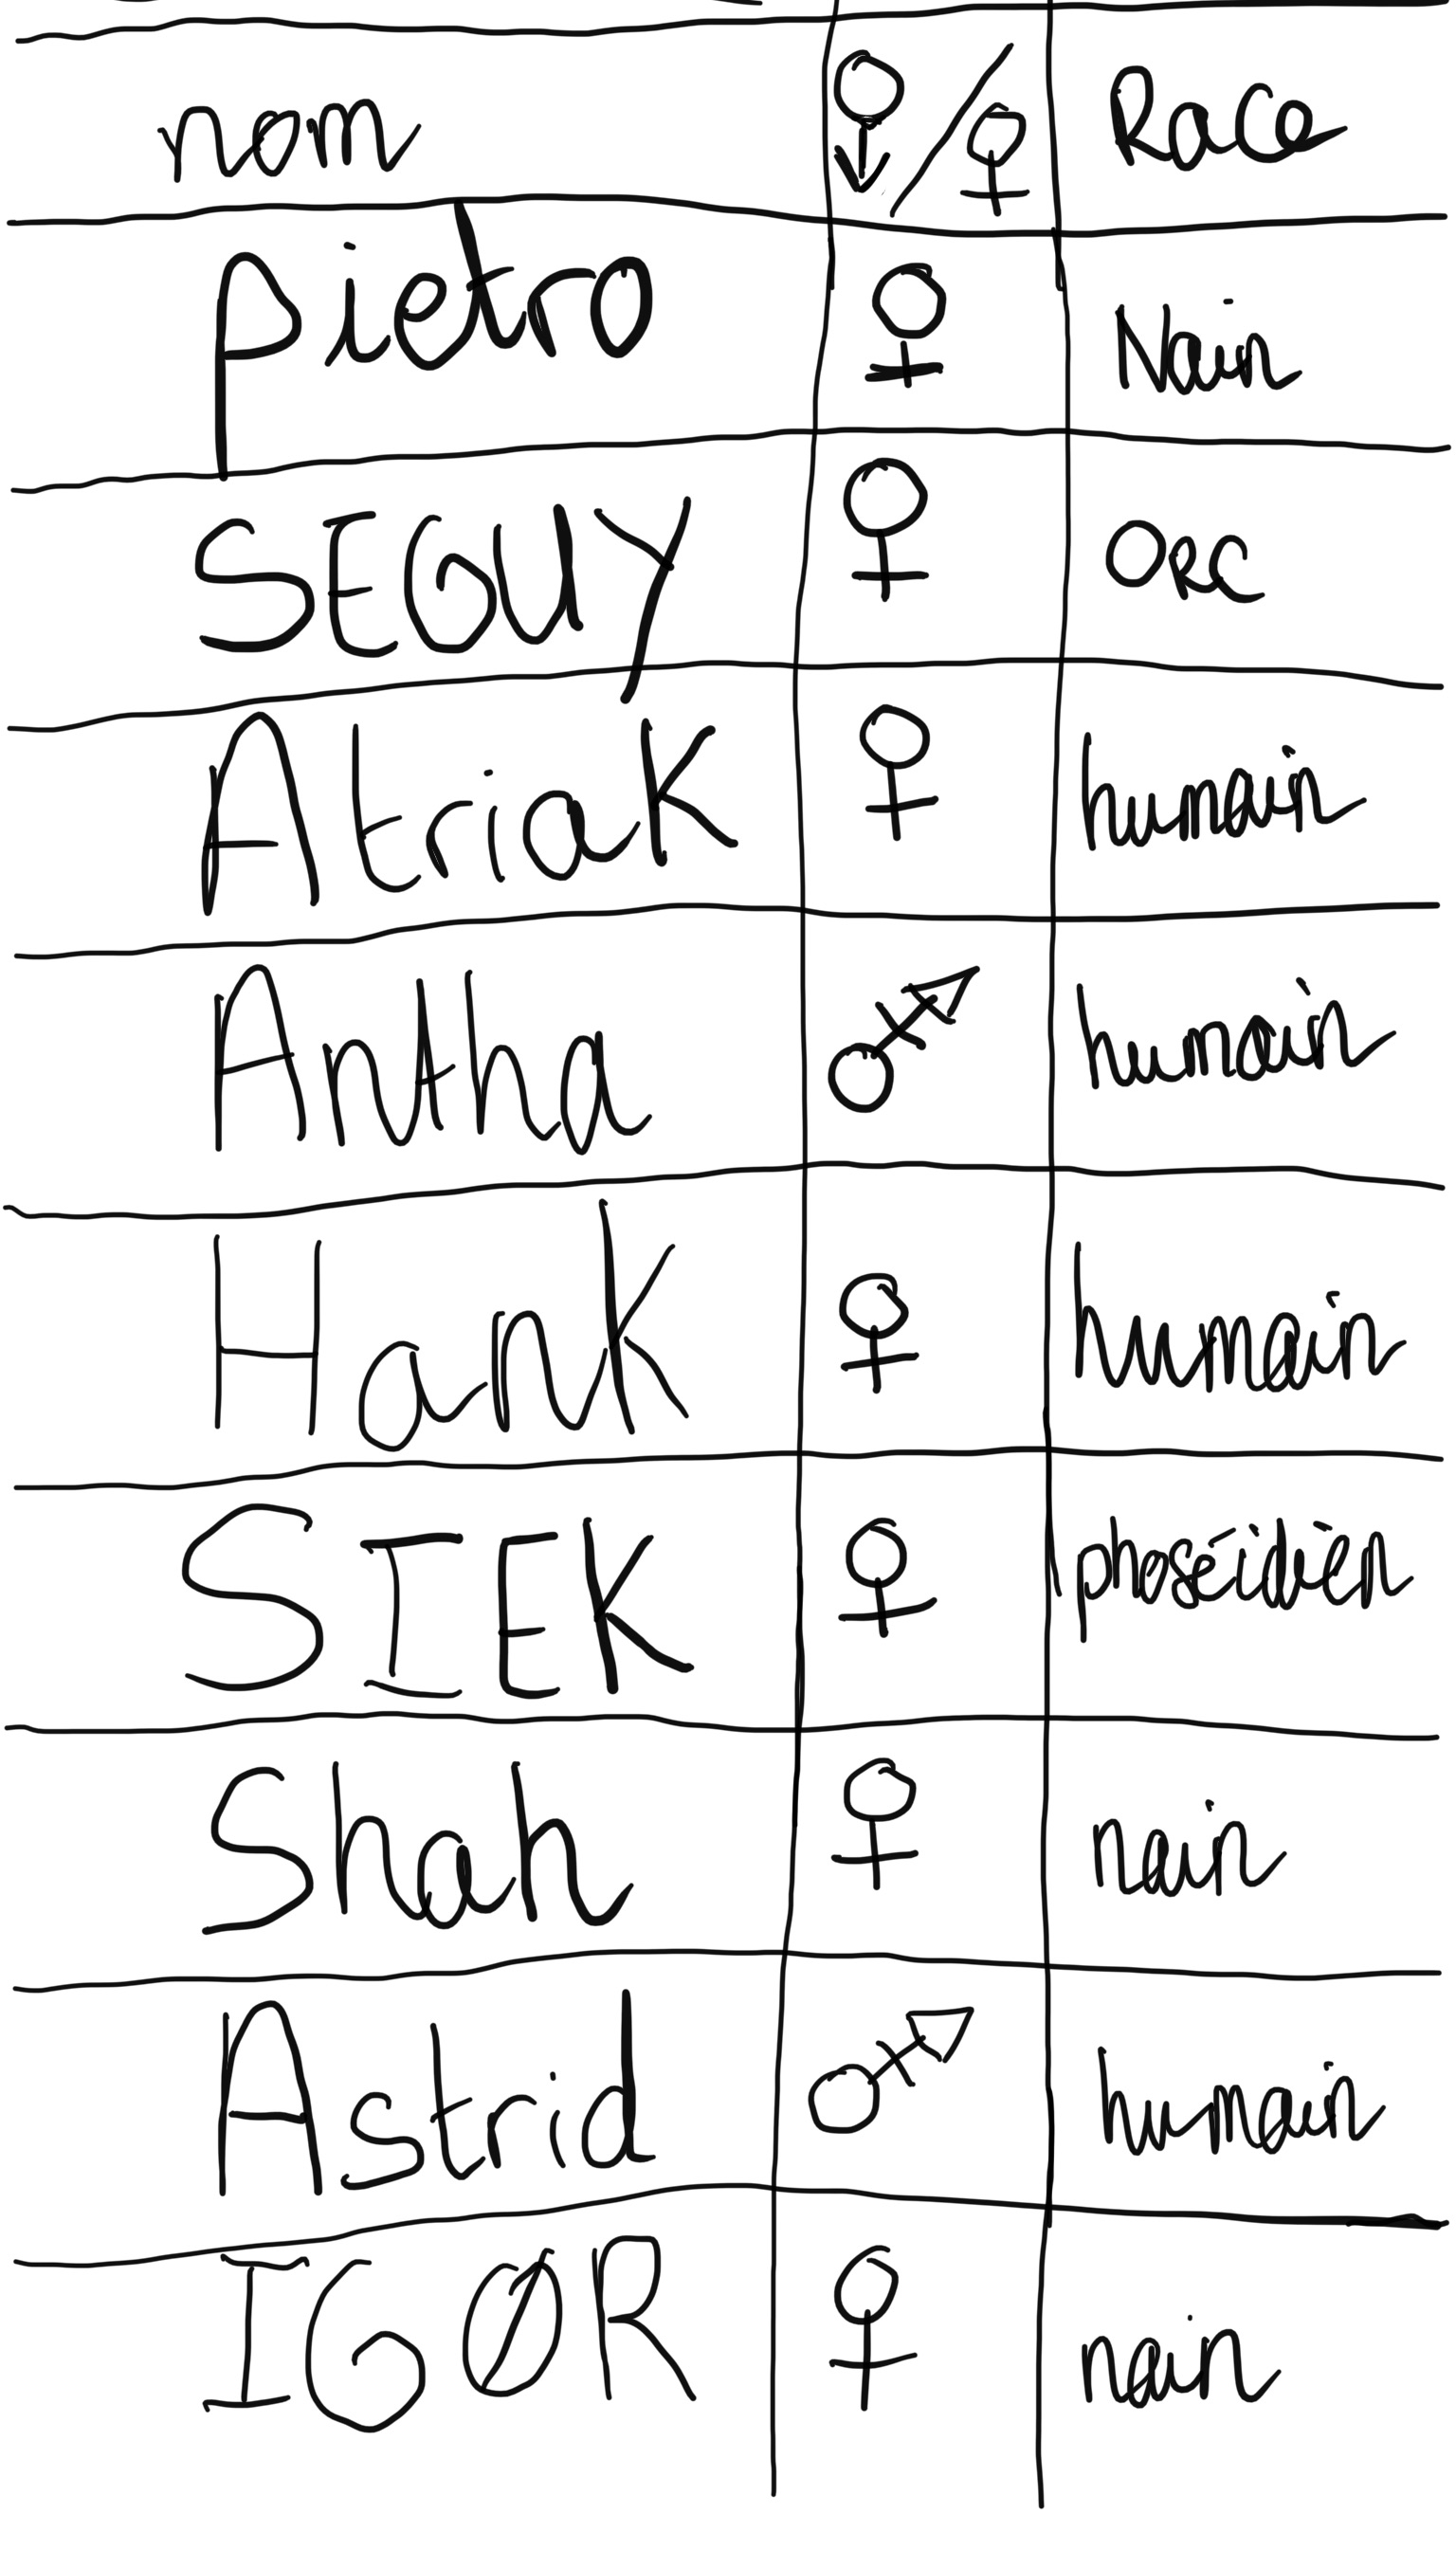 nom ♂/♀ Race
pietro ♀ Nain
SEGUY ♀ ORC
AtriaK ♀ humain
Antha ⚨ humain
HanK ♀ humain
SIEK ♀ phoséidien
Shah ♀ nain
Astrid ⚨ humain
IGØR ♀ nain